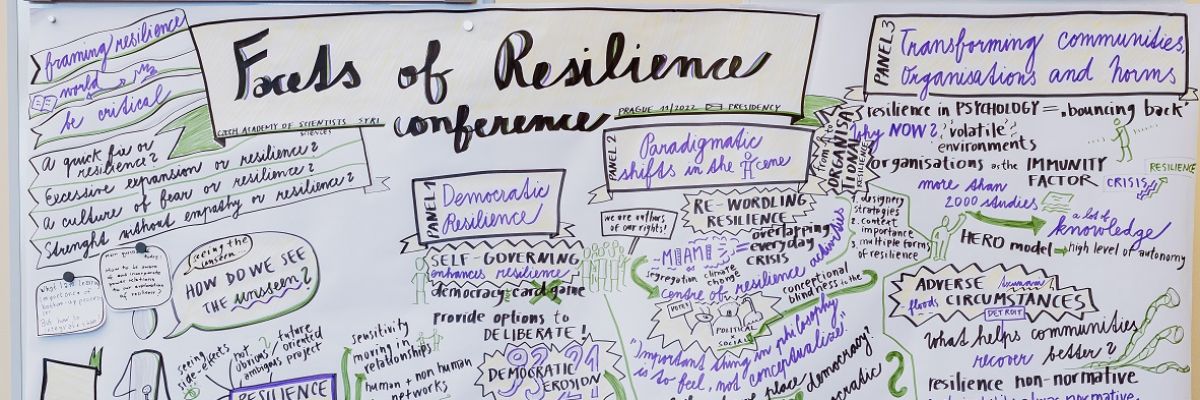 framing resilience
world
be critical
Facets of Resilience
conference
CZECH ACADEMY OF SCIENTISTS SYRI
SCIENCES
PRAGUE 11/2022 PRESIDENCY
A quick fix or
resilience?
Excessive expansion or resilience?
A culture of fear or resilience?
Strenght without empathy or resilience?
seeing the
unseen
HOW DO WE SEE
THE unseen?
seeing
side-effects
not
obvious
ambigous
future
oriented
project
RESILIENCE
sensitivity
moving in
relationships
human + non human
networks
PANEL 1
Democratic
Resilience
SELF-GOVERNING
enhances resilience
democracy card game
provide options to
DELIBERATE!
DEMOCRATIC
EROSION
we are authors
of our rights!
PANEL 2
Paradigmatic
shifts in the cene
RE-WORDLING
RESILIENCE
MIAMI
segregation climate
change
overlapping
everyday
CRISIS
centre of resilience activities
conceptional
blindness to the
POLITICAL
SOCIAL
"Important thing in philosophy
is to feel, not conceptualize."
place democracy?
PANEL 3
Transforming communities,
Organisations and norms
ORGANISA
TIONAL
RESILIENCE
resilience in PSYCHOLOGY = „bouncing back"
Why NOW? 'volatile'?
environments
organisations as the IMMUNITY
FACTOR
CRISIS
RESILIENCE
more than
2000 studies
a lot of
knowledge
1. designery
strategies
2. context
importance
3. multiple forms
of resilience
HERO model → high level of autonomy
ADVERSE
floods CIRCUMSTANCES
DETROIT
what helps communities
recover better?
resilience non-normative